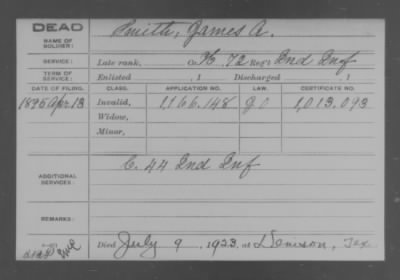 DEAD
NAME OF SOLDIER: Smith, James A.
SERVICE: Late rank, Co. 72 Reg't Ind Inf
TERM OF SERVICE: Enlisted , 1 Discharged , 1
DATE OF FILING. CLASS. APPLICATION NO. LAW. CERTIFICATE NO.
1895 Apr. 13 Invalid, 1,166,148 1,013,093
Widow,
Minor,
ADDITIONAL SERVICES: C. 44 Ind Inf
REMARKS:
Died July 9, 1923, at Denison, Tex